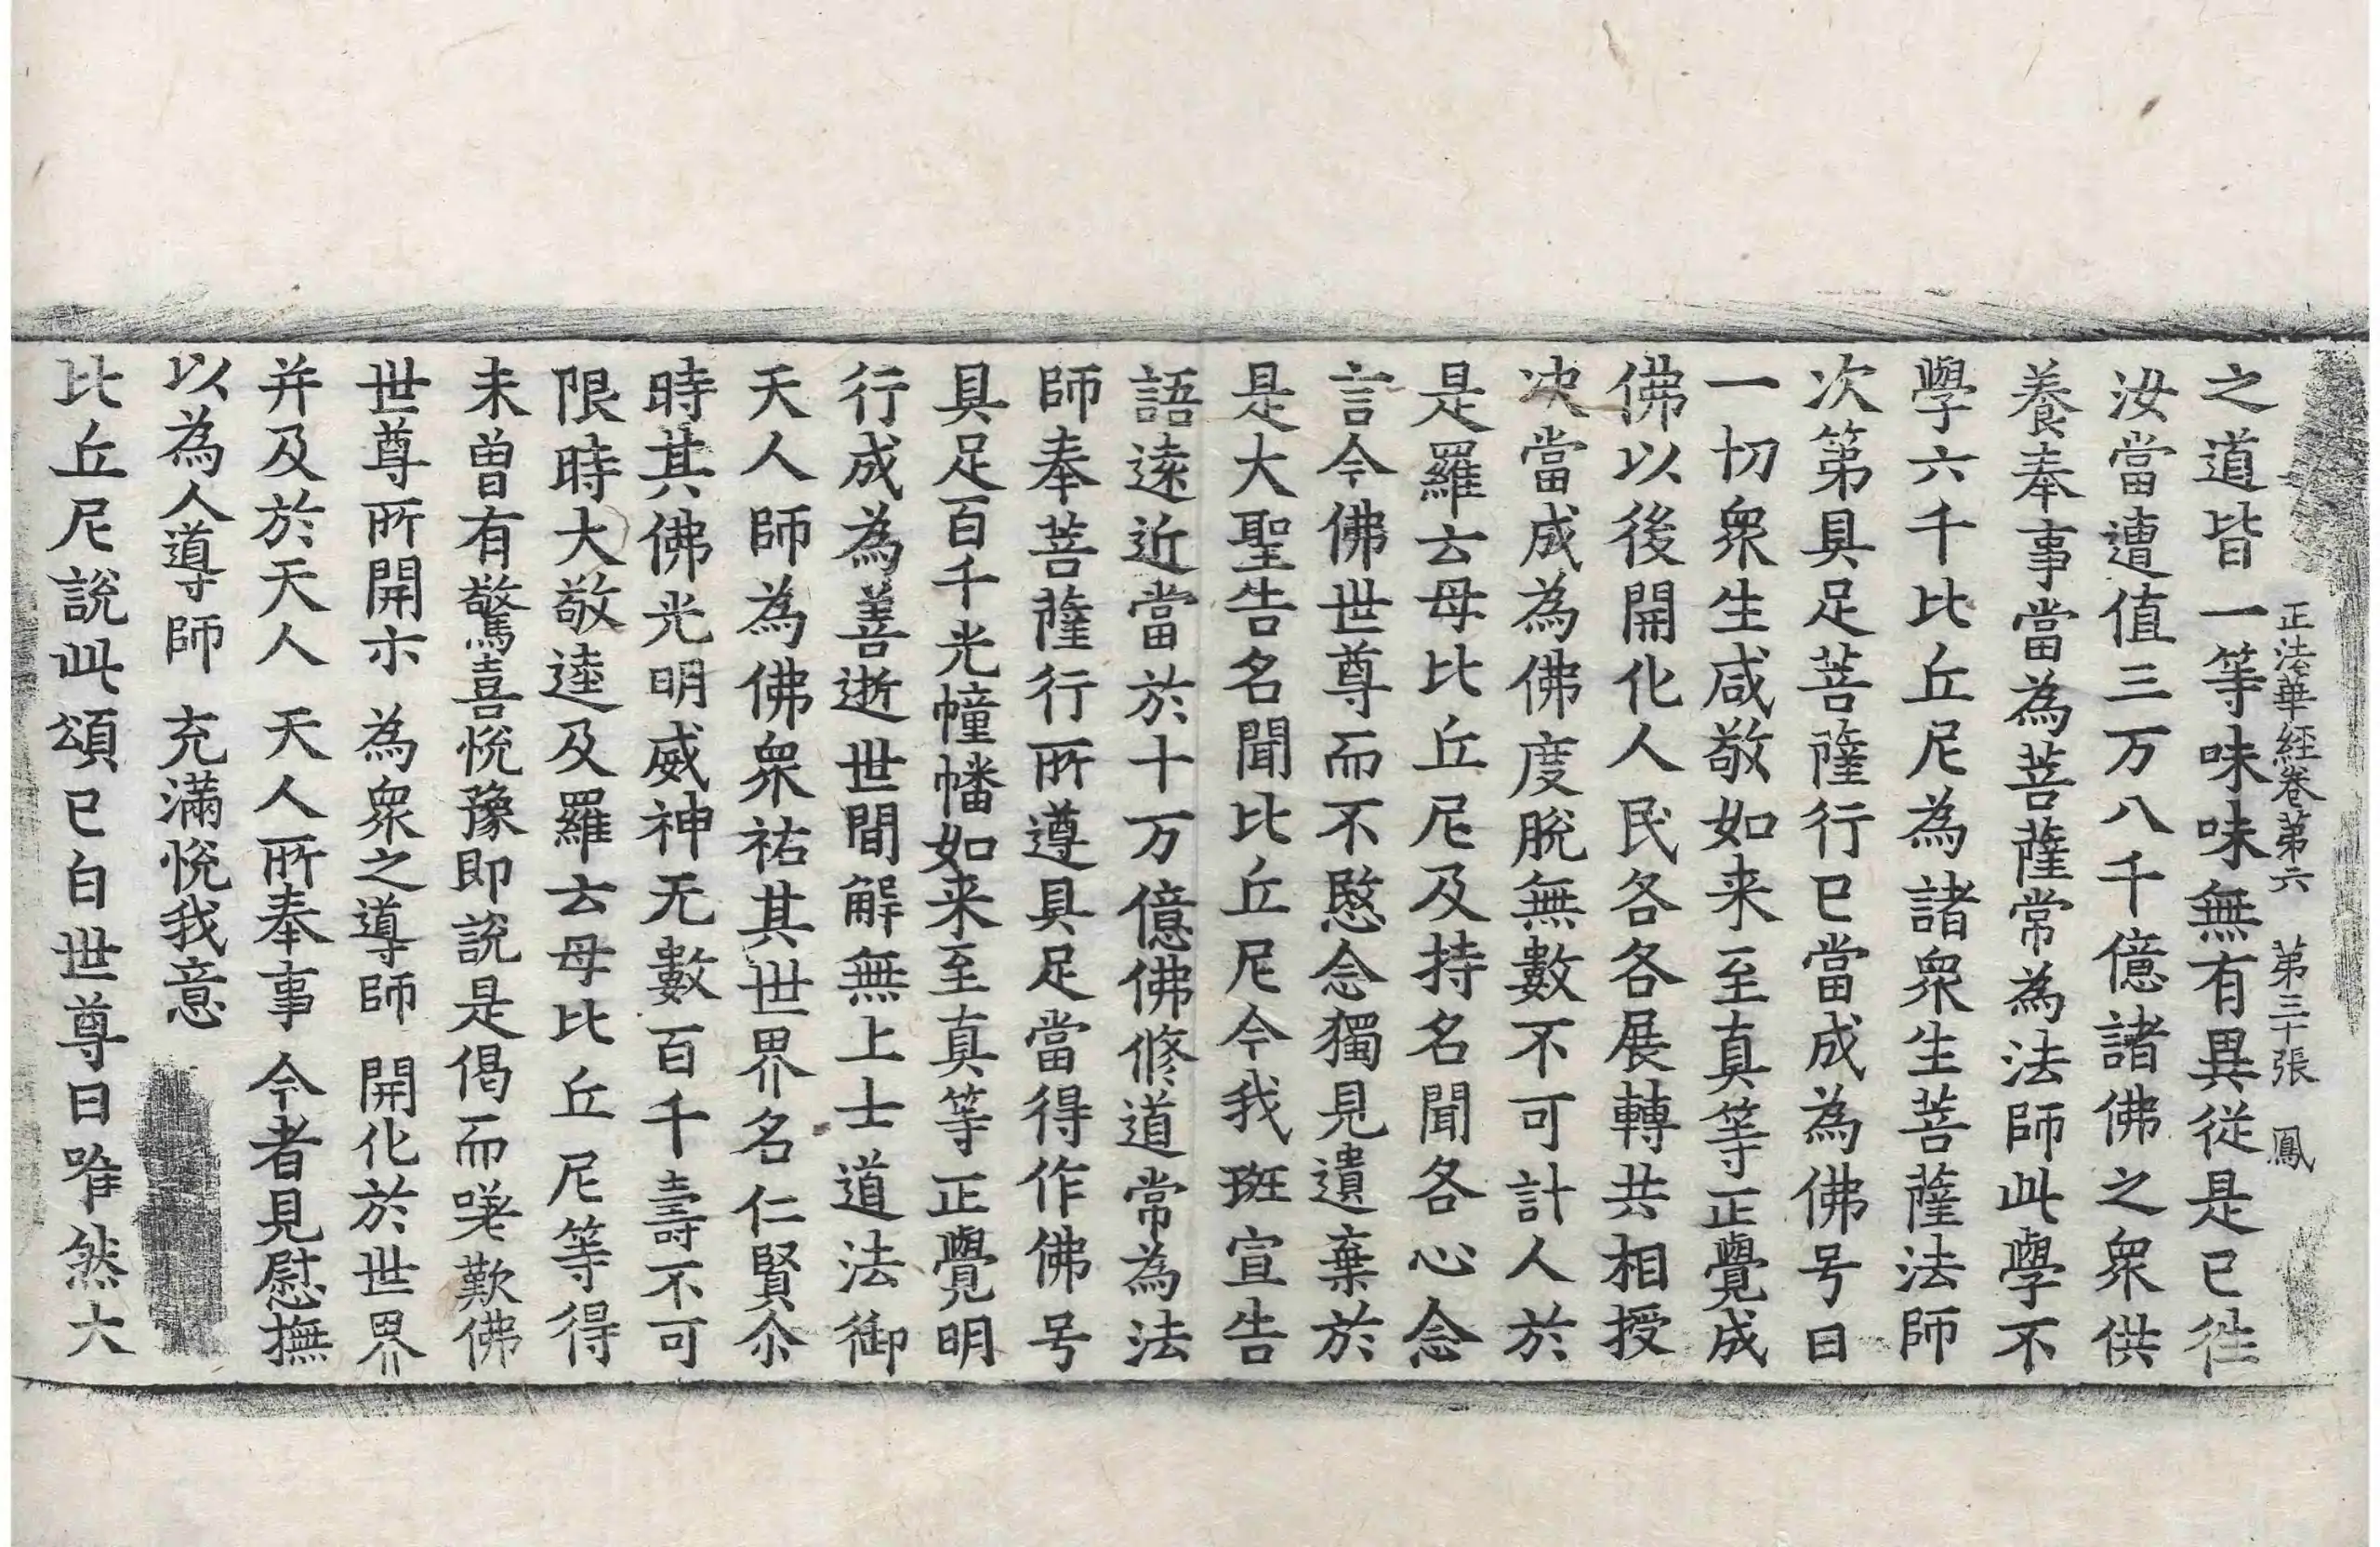 正法華經卷第六　第三十張　鳳
之道皆一等味味無有異從是已往
汝當遭值三万八千億諸佛之衆供
養奉事當為菩薩常為法師此學不
學六千比丘尼為諸衆生菩薩法師
次第具足菩薩行已當成為佛号曰
一切衆生咸敬如来至真等正覺成
佛以後開化人民各各展轉共相授
决當成為佛度脫無數不可計人於
是羅云母比丘尼及持名聞各心念
言今佛世尊而不愍念獨見遺棄於
是大聖告名聞比丘尼今我班宣告
語遠近當於十万億佛修道常為法
師奉菩薩行所遵具足當得作佛号
具足百千光幢幡如来至真等正覺明
行成為善逝世間解無上士道法御
天人師為佛衆祐其世界名仁賢尒
時其佛光明威神无數百千壽不可
限時大敬逵及羅云母比丘尼等得
未曾有驚喜悅豫即說是偈而嘆歎佛
世尊所開示　為衆之導師　開化於世界
并及於天人　天人所奉事　今者見慰撫
以為人導師　充滿悅我意
比丘尼說此頌已白世尊曰唯然大